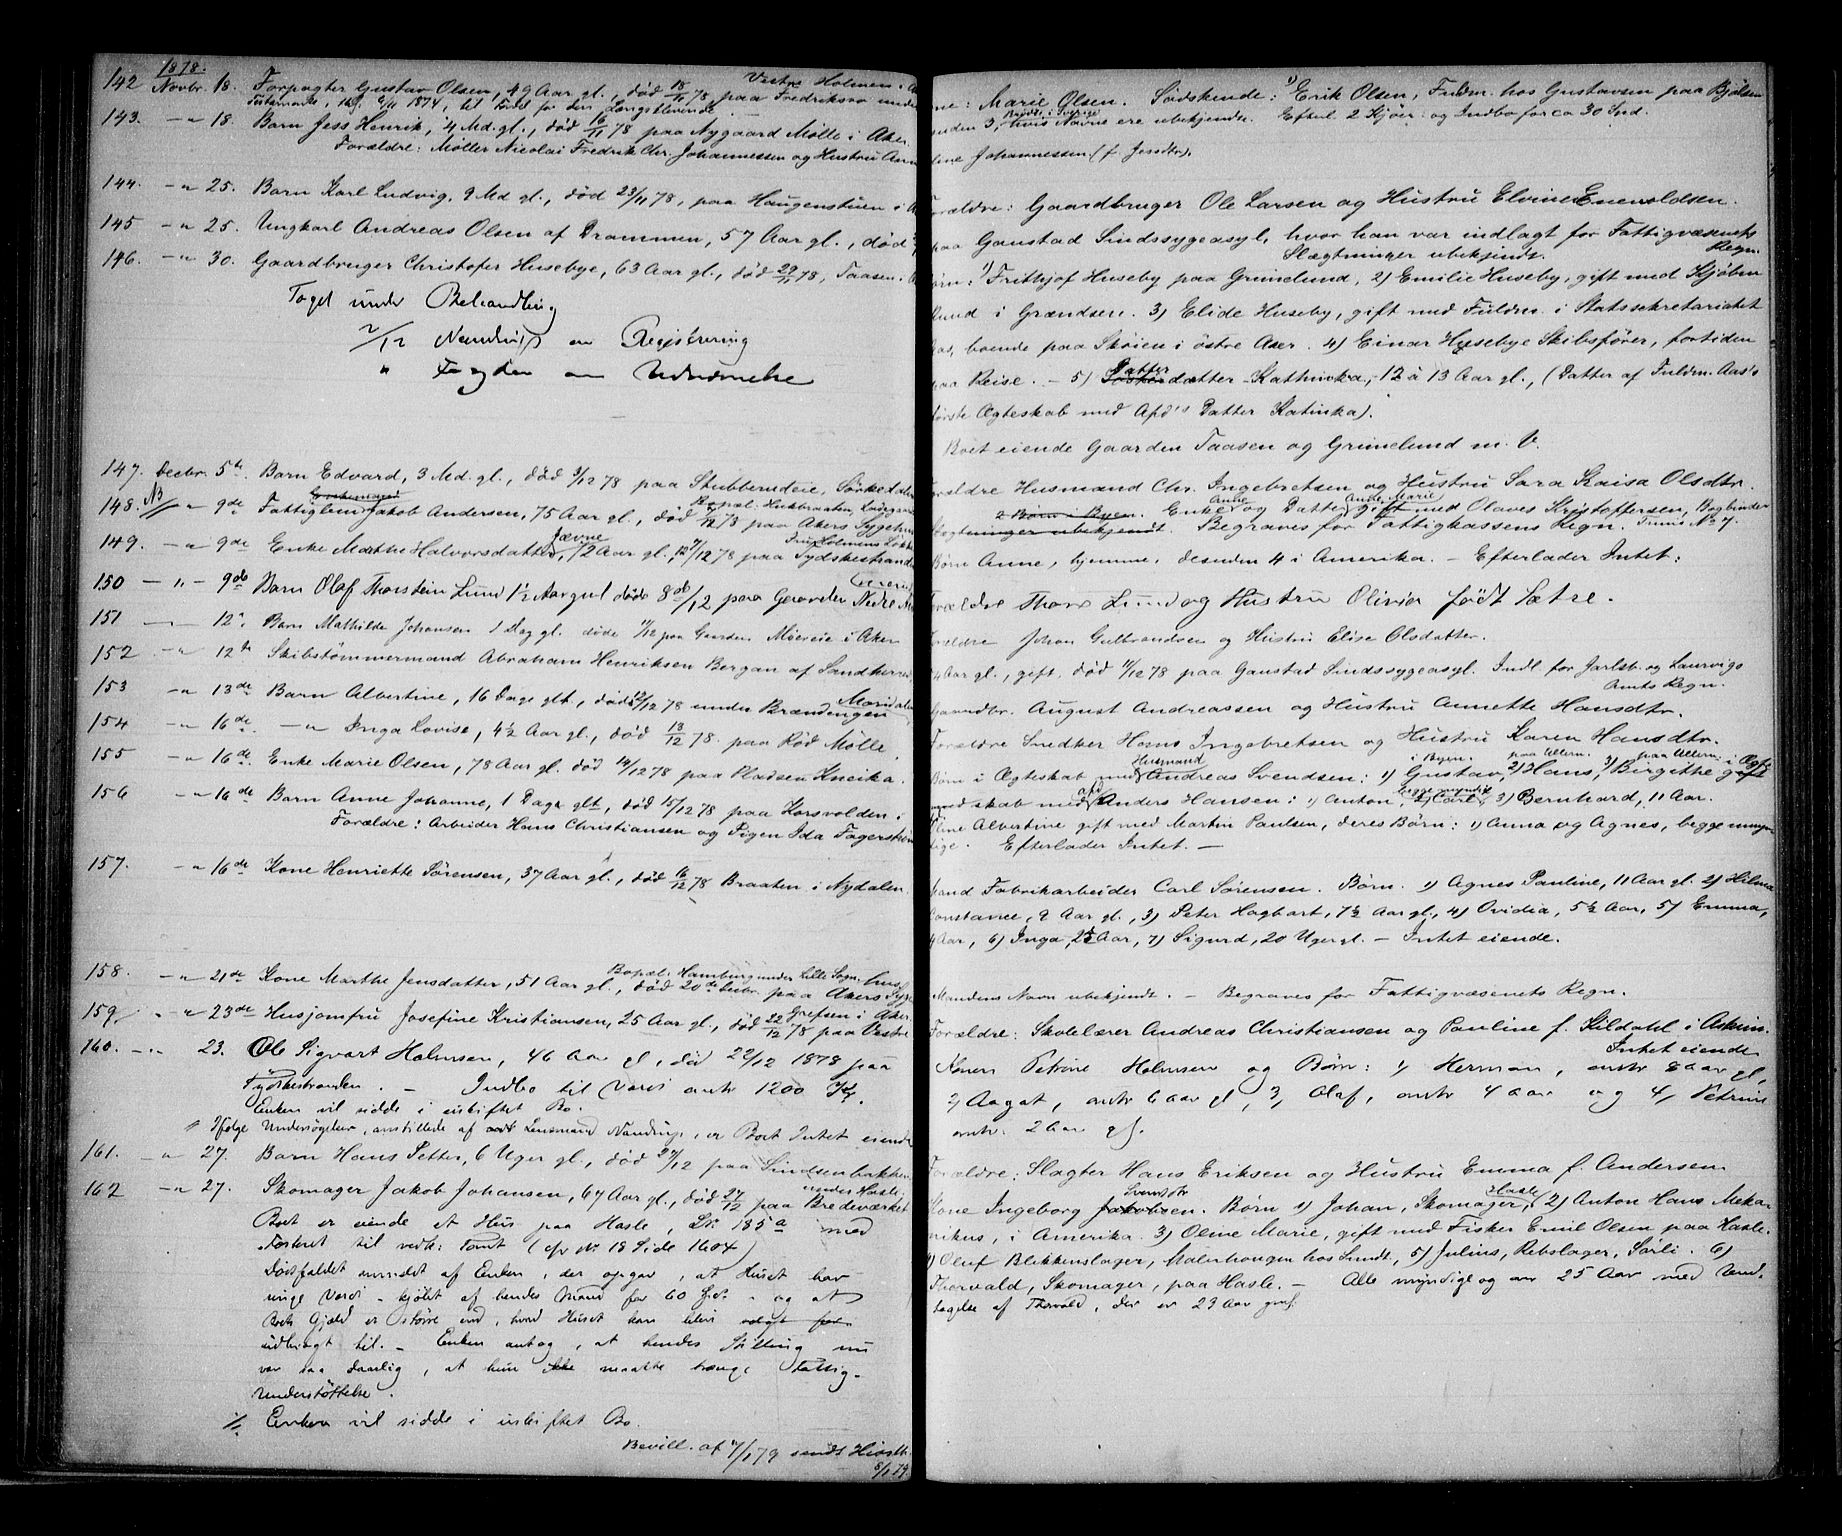 1878.
142 Novbr. 18. Forpagter Gustav Olsen, 49 Aar gl., død 18/11 78 paa Fredriksro under
Vestre Holmen i A
Testamente, dat. 6/11 1874, til Fordel for den Længstlevende.
143. -"- 18. Barn Jess Henrik, 4 Md. gl., død 16/11 78 paa Nygaard Mølle i Aker.
Forældre: Møller Nicolai Fredrik Chr. Johannessen og Hustru
144. -"- 25. Barn Karl Ludvig, 9 Md gl., død 23/11 78, paa Haugenstuen i A
145 -"- 25. Ungkarl Andreas Olsen af Drammen, 57 Aar gl., død
146. -"- 30. Gaardbruger Christofer Husebye, 63 Aar gl., død 29/11 78, Taasen.
Taget under Behandling
2/12 Nandrup om Registrering
" Fogden om Udnævnelse
147. Decbr. 5te. Barn Edvard, 3 Md. gl., død 3/12 78 paa Stubberudeie, Sørkedalen
148. NB -"- 9de Fattiglem Jakob Andersen, 75 Aar gl., død 5/12 78 paa Akers Sygehus
149. -"- 9de Enke Mathe Halvorsdatter Jævne, 72 Aar gl., 7/12 78 paa Tydskestranden
150 -"- 9de Barn Olaf Thorstein Lund 1½ Aar gul døde 8de/12 paa Gaarden Nedre
151 -"- 12te Barn Mathilde Johansen 1 Dag gl. døde 11/12 paa Gaarden Möereie i Aker
152 -"- 12te Skibstømmermand Abraham Henriksen Bergan af Sandherred
153 -"- 13de Barn Albertine, 16 Dage glt., død 12/12 78 under Brændengen
Maridalen
154 -"- 16de -"- Inga Lovise, 4½ Aar gl., død 13/12 78. paa Rød Mølle
155 -"- 16de. Enke Marie Olsen, 78 Aar gl. død 14/12 78 paa Pladsen Kneika.
156 -"- 16de Barn Anne Johanne, 1 Dage glt., død 15/12 78 paa Korsvolden i
Forældre: Arbeider Hans Christiansen og Pigen Ida Fagerskien
157. -"- 16de Kone Henriette Sørensen, 37 Aar gl., død 16/12 78 Braaten i Nydalen.
Bopæl. Hamburg under Lille Sogn.
158. -"- 21de Kone Marthe Jensdatter, 51 Aar gl., død 20de Decbr. paa Akers Syge
hus
159 -"- 23de Husjomfru Josefine Kristiansen, 25 Aar gl., død 22/12 78 paa Vestre
Grefsen i Aker.
160. -"- 23. Ole Sigvart Holmsen, 46 Aar gl, død 22/12 1878 paa
Tydskestranden. - Indbo til Værdi antr 1200 Kr.
Enken vil sidde i uskiftet Bo.
Ifølge Undersøgelser, anstillede af Lensmand Nandrup, er Boet Intet eiende
161. -"- 27. Barn Hans Petter, 6 Uger gl., død 27/12 paa Sindsenbakken
162 -"- 27. Skomager Jakob Johansen, 67 Aar gl., død 27/12 paa Bredeværket
under Hasle.
Boet er eiende et Hus paa Hasle, Lr. 185a med
Festeret til vedk: Tomt (cfr No 18 Side 1604)
Dødsfaldet anmeldt af Enken, der opgav, at Huset har
ringe Værdi - kjøbt af hendes Mand for 60 Spd. - og at
Boets Gjæld er større end, hvad Huset kan blive solgt for
udbragt til. - Enken antog, at hendes Stilling nu
var saa daarlig, at hun ikke maatte trænge Fattig-
Understøttelse.
Enken vil sidde i uskiftet Bo.
Bevill. af 7/1 79 sendt
8/1 79.
ne: Marie Olsen. Sødskende: 1) Erik Olsen, Fuldm. hos Gustavsen paa Bjølsen
enden 3, Bosatte i Sverige hvis Navne ere ubekjendte. Efterl. 2 Kjøer og Indbo for ca 30 Spd.
line Johannessen (f. Jensdtr).
Forældre: Gaardbruger Ole Larsen og Hustru Elvine Enevoldsen.
paa Gaustad Sindssygeasyl, hvor han var indlagt for Fattigvæsenets
Regn.
Slægtninger ubekjendt.
Børn: 1) Frithjof Huseby paa Grimelund, 2) Emilie Huseby, gift med Kjøbm
Lund i Grændsen. 3) Elide Huseby, gift med Fuldm. i Statssekretariatet
Aas, boende paa Skøien i østre Aker. 4) Einar Husebye Skibsfører, fortiden
paa Reise. - 5) Datter datter Kathinka, 12 à 13 Aar gl., (Datter af Fuldm. Aas's
første Ægteskab med Afd's Datter Katinka).
Boet eiende Gaarden Taasen og Grimelund m. V.
Forældre Husmand Chr. Ingebretsen og Hustru Sara Kaisa Olsdtr.
2 Børn i Byen. Enke Anne og Datter Anne Marie gift med Olaves Kristoffersen, Bogbinder
Slægtninger ubekjendt. Begraves for Fattigkassens Regn.
Børn Anne, hjemme, desuden 4 i Amerika. - Efterlader Intet:
Forældre Thore Lund og Hustru Olivia født Sætre.
Forældre Johan Gulbrandsen og Hustru Elise Olsdatter.
Aar gl., gift, død 11/12 78 paa Gaustad Sindssygeasyl. Indl. for Jarlsb. og Laurvigs
Amts Regn.
Gaardbr. August Andreassen og Hustru Annette Hansdtr.
Forældre Snedker Hans Ingebretsen og Hustru Karen Hansdtr.
Børn i Ægteskab med Husmand Andreas Svendsen: 1) Gustav, i Byen. 2) Hans, paa Ullern. 3) Birgithe paa Ullern. gift
skab med afd Anders Hansen: 1) Anton, 2) Carl, begge myndige 3) Bernhard, 11 Aar.
line Albertine gift med Martin Paulsen, deres Børn: 1) Anna og Agnes, begge umyn-
dige. Efterlader Intet. -
Mand Fabrikarbeider Carl Sørensen. Børn. 1) Agnes Pauline, 11 Aar gl. 2) Hilma
Constance, 9 Aar gl., 3) Peter Hagbart, 7½ Aar gl., 4) Ovidia, 5½ Aar, 5) Emma,
4 Aar, 6) Inga, 2½ Aar, 7) Sigurd, 20 Uger gl. - Intet eiende.
Mandens Navn ubekjendt. - Begraves for Fattigvæsenets Regn.
Forældre: Skolelærer Andreas Christiansen og Pauline f. Kildahl i Askim.
Intet eiende
Konen Petrine Holmsen og Børn: 1) Herman, antr 8 Aar gl,
2) Aagot, antr 6 Aar gl, 3, Olaf, antr 4 Aar og 4, Petrine
antr. 2 Aar gl.
Forældre: Slagter Hans Eriksen og Hustru Emma f. Andersen.
Kone Ingeborg Jakobsen. Svendsdtr Børn 1) Johan, Skomager, Hasle, 2) Anton Hans Meka-
nikus, i Amerika. 3) Oline Marie, gift med Fisker Emil Olsen paa Hasle.
4) Oluf Blikkenslager, Malerhaugen hos Lundt, 5) Julius, Rebslager, Sørli. 6)
Thorvald, Skomager, paa Hasle. - Alle myndige og over 25 Aar med Und-
tagelse af Thorvald, der er 23 Aar gml.